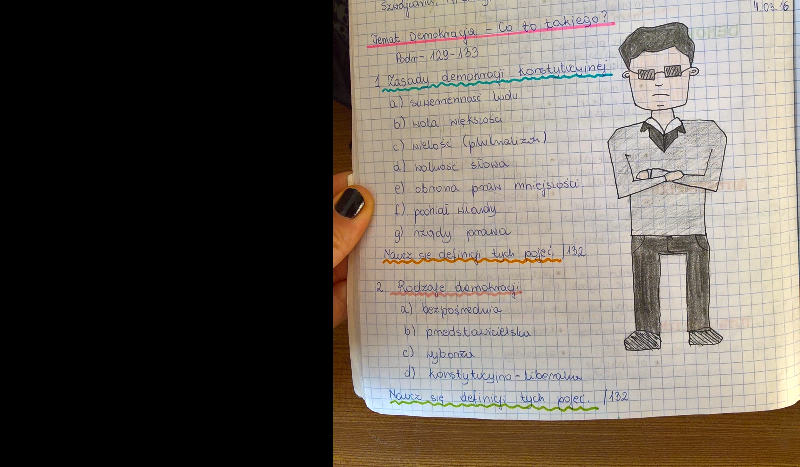 4.03.16
Temat Demokracja - Co to takiego?
Podr- 129-133
1 Zasady demokracji konstytucyjnej
a) suwerenność ludu
b) wola większości
c) wielość (pluralizm)
d) wolność słowa
e) obrona praw mniejszości
f) podział władzy
g) rządy prawa
Naucz się definicji tych pojęć. /132
2 Rodzaje demokracji
a) bezpośrednia
b) przedstawicielska
c) wyborcza
d) konstytucyjno-liberalna
Naucz się definicji tych pojęć. /132